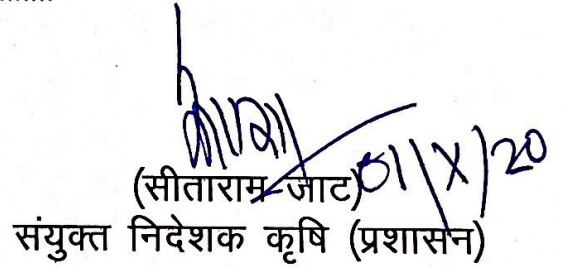 01/X/20
(सीताराम जाट)
संयुक्त निदेशक कृषि (प्रशासन)